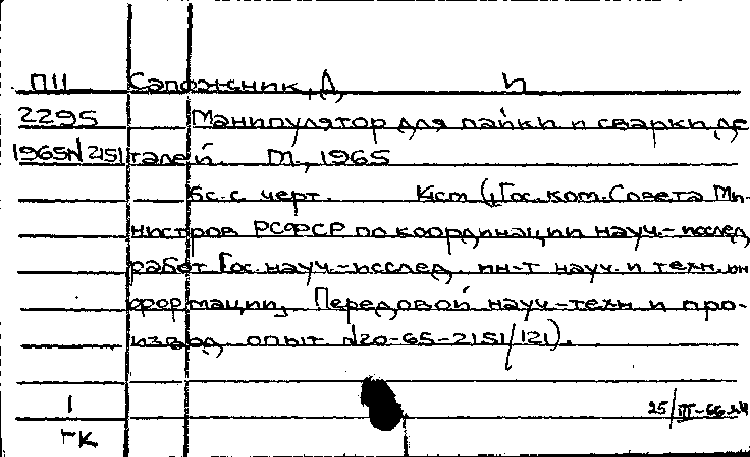 П11 Сапожник, Д. И
2295 Манипулятор для пайки и сварки де
1965N2151 талей. М., 1965
6с. с черт. (Гос. ком. Совета Ми-
нистров РСФСР по координации науч.-исслед
работ Гос. науч.-исслед. ин-т науч. и техн. ин
формации, Передовой науч-техн и про-
извод опыт N20-65-2151/121).
1 25/III-66
ГК